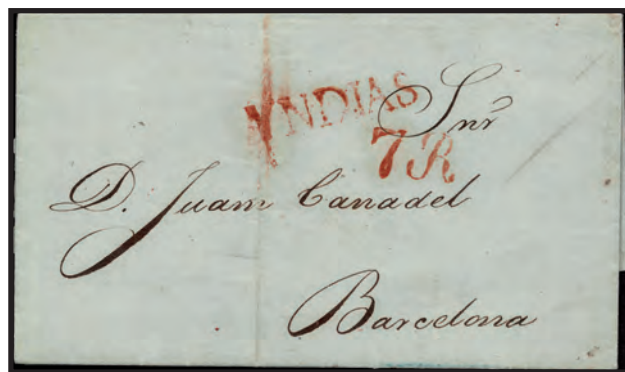 YNDIAS
Snr
7R
D. Juam Canadel
Barcelona